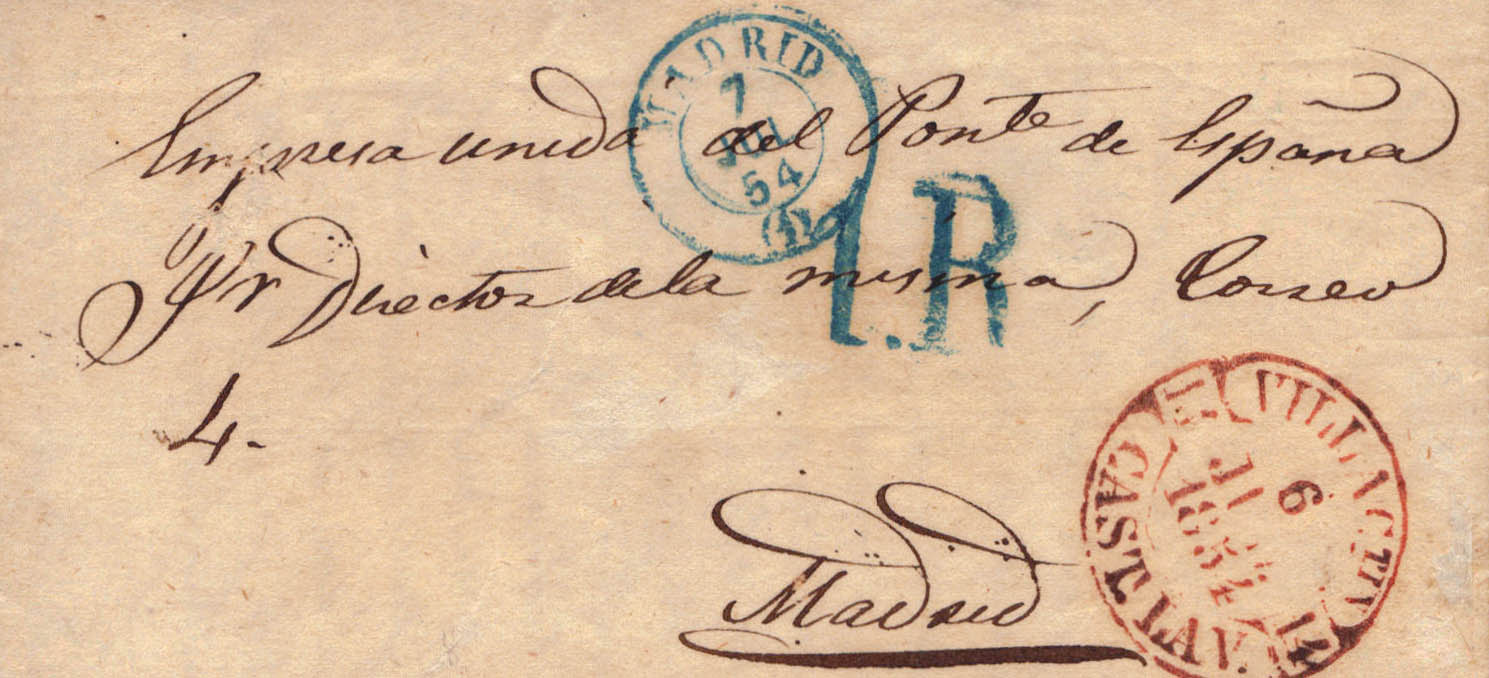 MADRID
7
JUL
54
(1)
Empresa unida del Ponte de España
Sr Director de la misma, Correo
1.R
4.-
Madrid
6
JUL
1854
CAST. LA V.